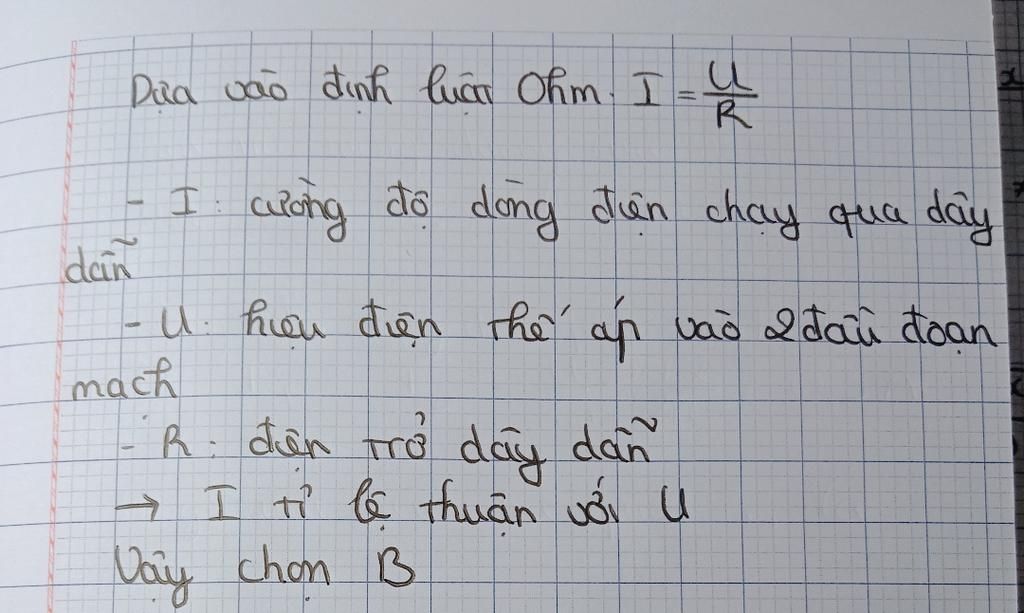 Dựa vào định luật Ohm. I = U/R
- I: cường độ dòng điện chạy qua dây
dẫn
- U: hiệu điện thế áp vào 2 đầu đoạn
mạch
- R: điện trở dây dẫn
→ I tỉ lệ thuận với U
Vậy chọn B